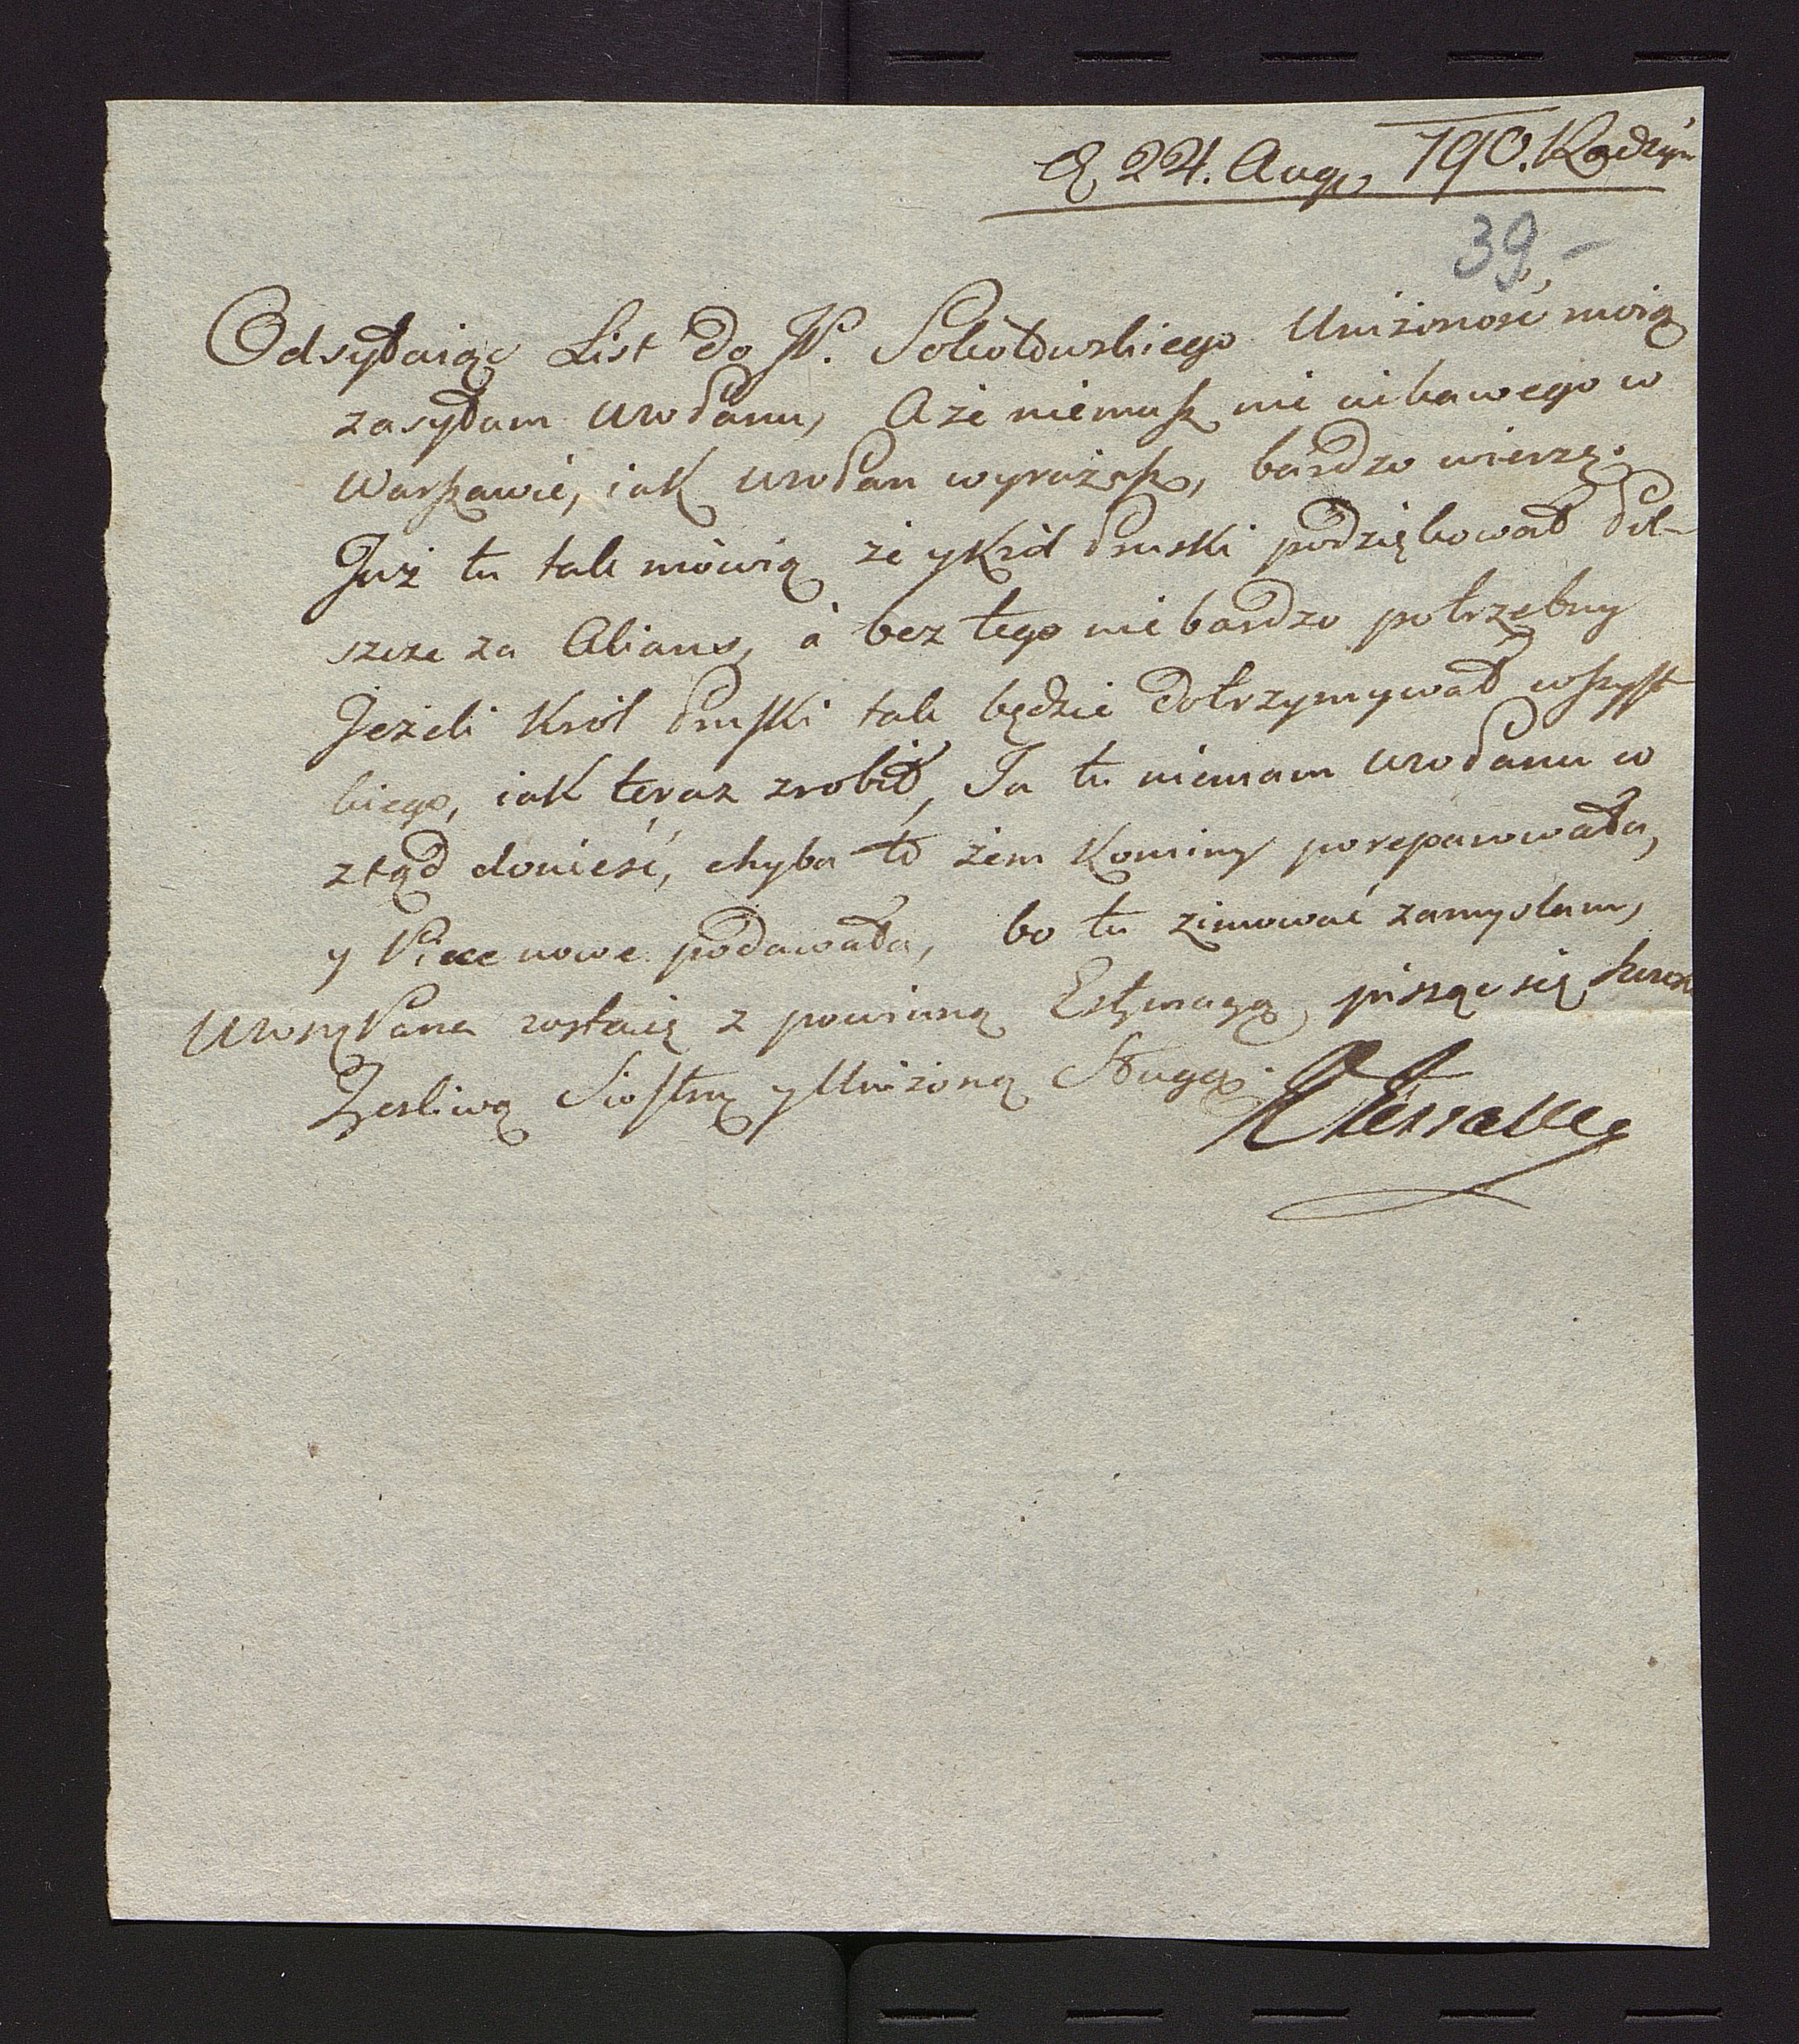 D 24. Aug, 790. Radzyn
39,-
Odsyłaiąc List do JP. Sokołowskiego Uniżoność moią
zasyłam WwPanu, A że niemasz nic ciekawego w
Warszawie, iak WwPan wyrażasz, bardzo wierzę.
Już tu tak mówią że y Król Pruski podziękował Pol-
szcze za Alians, à bez tego nie bardzo potrzebny
Jeżeli Król Pruski tak będzie dotrzymywał wszyst
kiego, iak teraz zrobił, Ja tu niemam WwPanu co
ztąd donieść, chyba to żem Kominy poreparowała,
y Piece nowe podawała, bo tu zimować zamyslam,
Pana zostaię z powinną Estymacyą, pisząc się
Życzliwą Siostrą y Uniżoną Sługą.